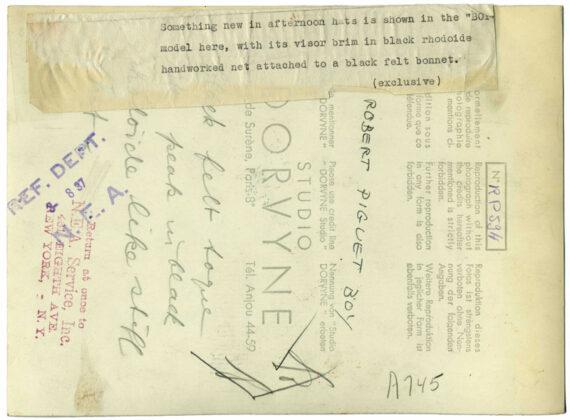 Something new in afternoon hats is shown in the "BOY"
model here, with its visor brim in black rhodoide
handworked net attached to a black felt bonnet.
(exclusive)
REF. DEPT.
8 '37
N. E. A.
Return at once to
N.E.A. Service, Inc.
461 EIGHTH AVE.
NEW YORK, - N. Y.
felt toque
peak in
like stiff
STUDIO
DORVYNE
de Surène, Paris-8e
Tél. Anjou 44-59
à mentionner
"DORVYNE"
Please use credit line
"DORVYNE Studio"
Nennung von "Studio
DORVYNE" erbeten
ROBERT PIGUET BOY
formellement
de reproduire
photographie
mentions ci-
dition sous
forme que ce
Reproduction of this
photograph without
the credits hereafter
mentioned is strictly
forbidden.
Further reproduction
in any form is also
forbidden.
Reproduktion dieses
Fotos ist strengstens
verboten ohne Nen-
nung der folgenden
Angaben.
Weitere Reproduktion
in jeglicher Form ist
ebenfalls verboten.
N° RP594
A745